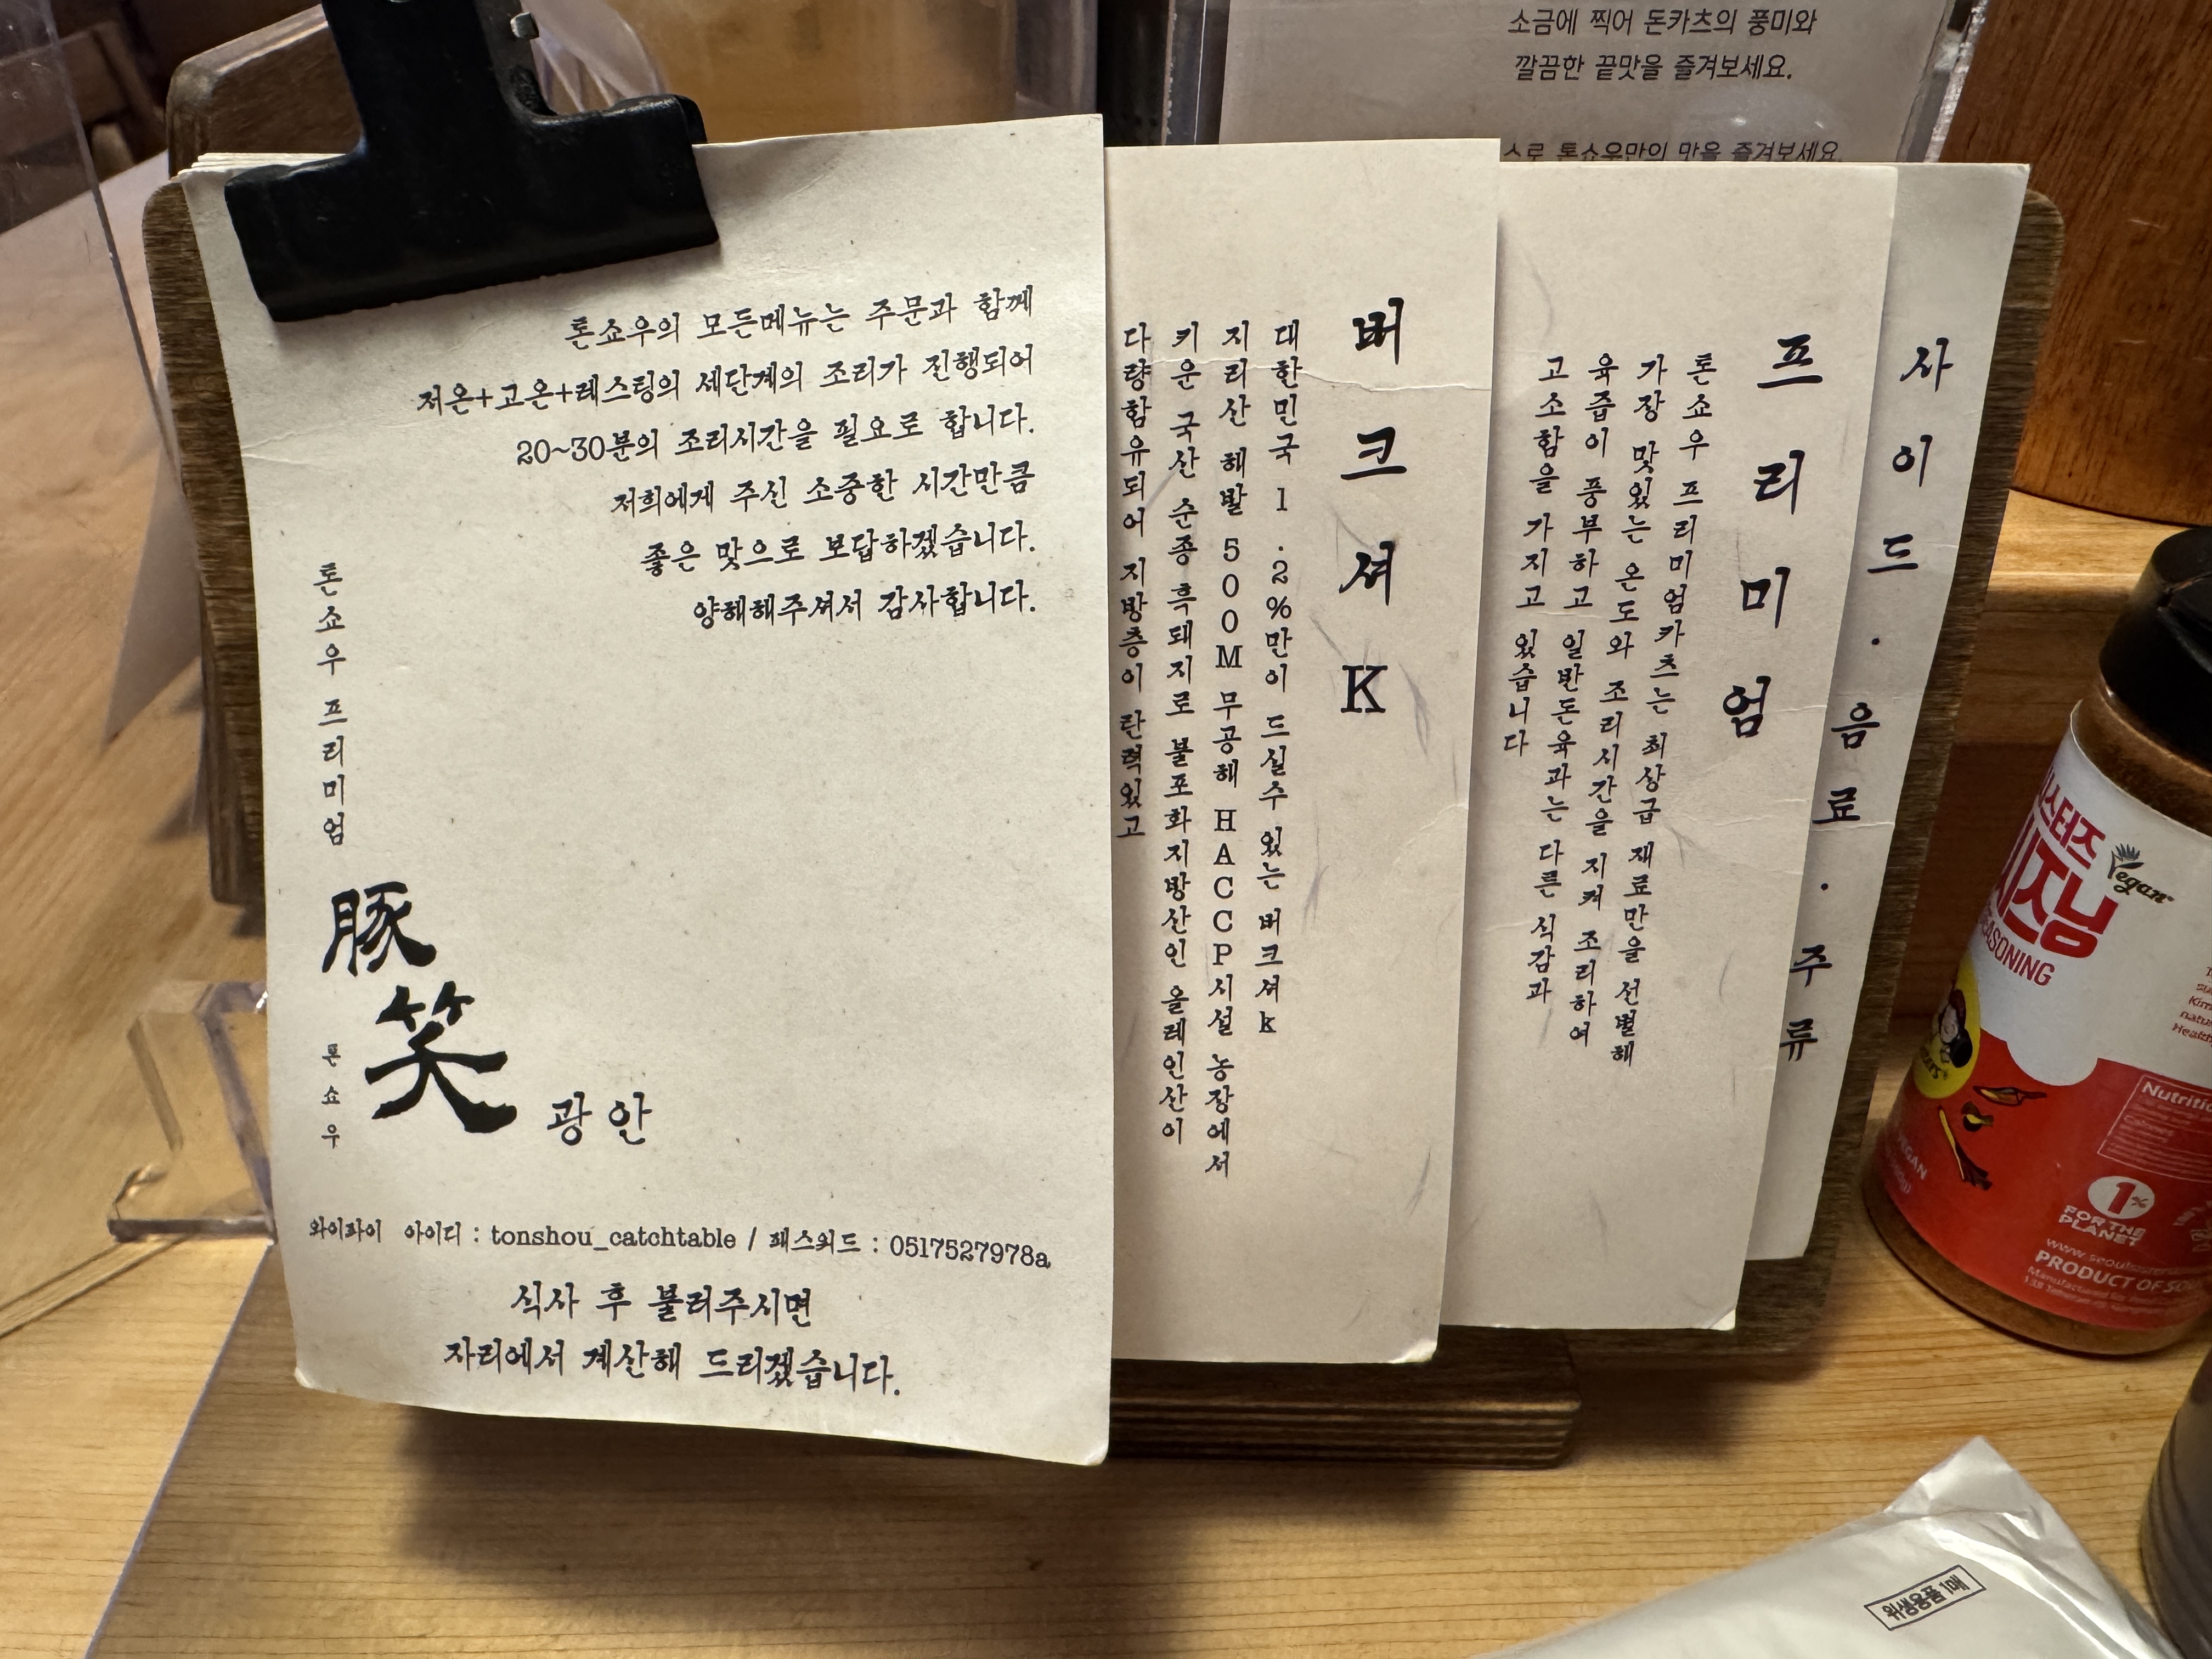 소금에 찍어 돈카츠의 풍미와
깔끔한 끝맛을 즐겨보세요.
스로 톤쇼우만의 맛을 즐겨보세요.
톤쇼우의 모든메뉴는 주문과 함께
저온+고온+레스팅의 세단계의 조리가 진행되어
20~30분의 조리시간을 필요로 합니다.
저희에게 주신 소중한 시간만큼
좋은 맛으로 보답하겠습니다.
양해해주셔서 감사합니다.
톤쇼우 프리미엄
豚笑
톤쇼우
광안
와이파이 아이디 : tonshou_catchtable / 패스워드 : 0517527978a
식사 후 불러주시면
자리에서 계산해 드리겠습니다.
버크셔K
대한민국 1.2%만이 드실수 있는 버크셔k
지리산 해발 500M 무공해 HACCP시설 농장에서
키운 국산 순종 흑돼지로 불포화지방산인 올레인산이
다량함유되어 지방층이 탄력있고
프리미엄
톤쇼우 프리미엄카츠는 최상급 재료만을 선별해
가장 맛있는 온도와 조리시간을 지켜 조리하여
육즙이 풍부하고 일반돈육과는 다른 식감과
고소함을 가지고 있습니다
사이드·음료·주류
스터즈
시즈닝
SEASONING
Vegan
Nutriti
1%
FOR THE
PLANET
PRODUCT OF
위생용품 1매